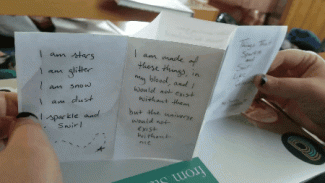 I am stars
I am glitter
I am snow
I am dust
I sparkle and
swirl
I am made of
these things, in
my blood, and I
would not exist
without them
but the universe
would not
exist
without
me
from